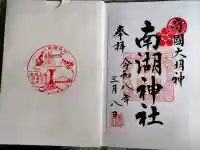 奉拝
南湖神社
令和八年
三月八日
國大明神